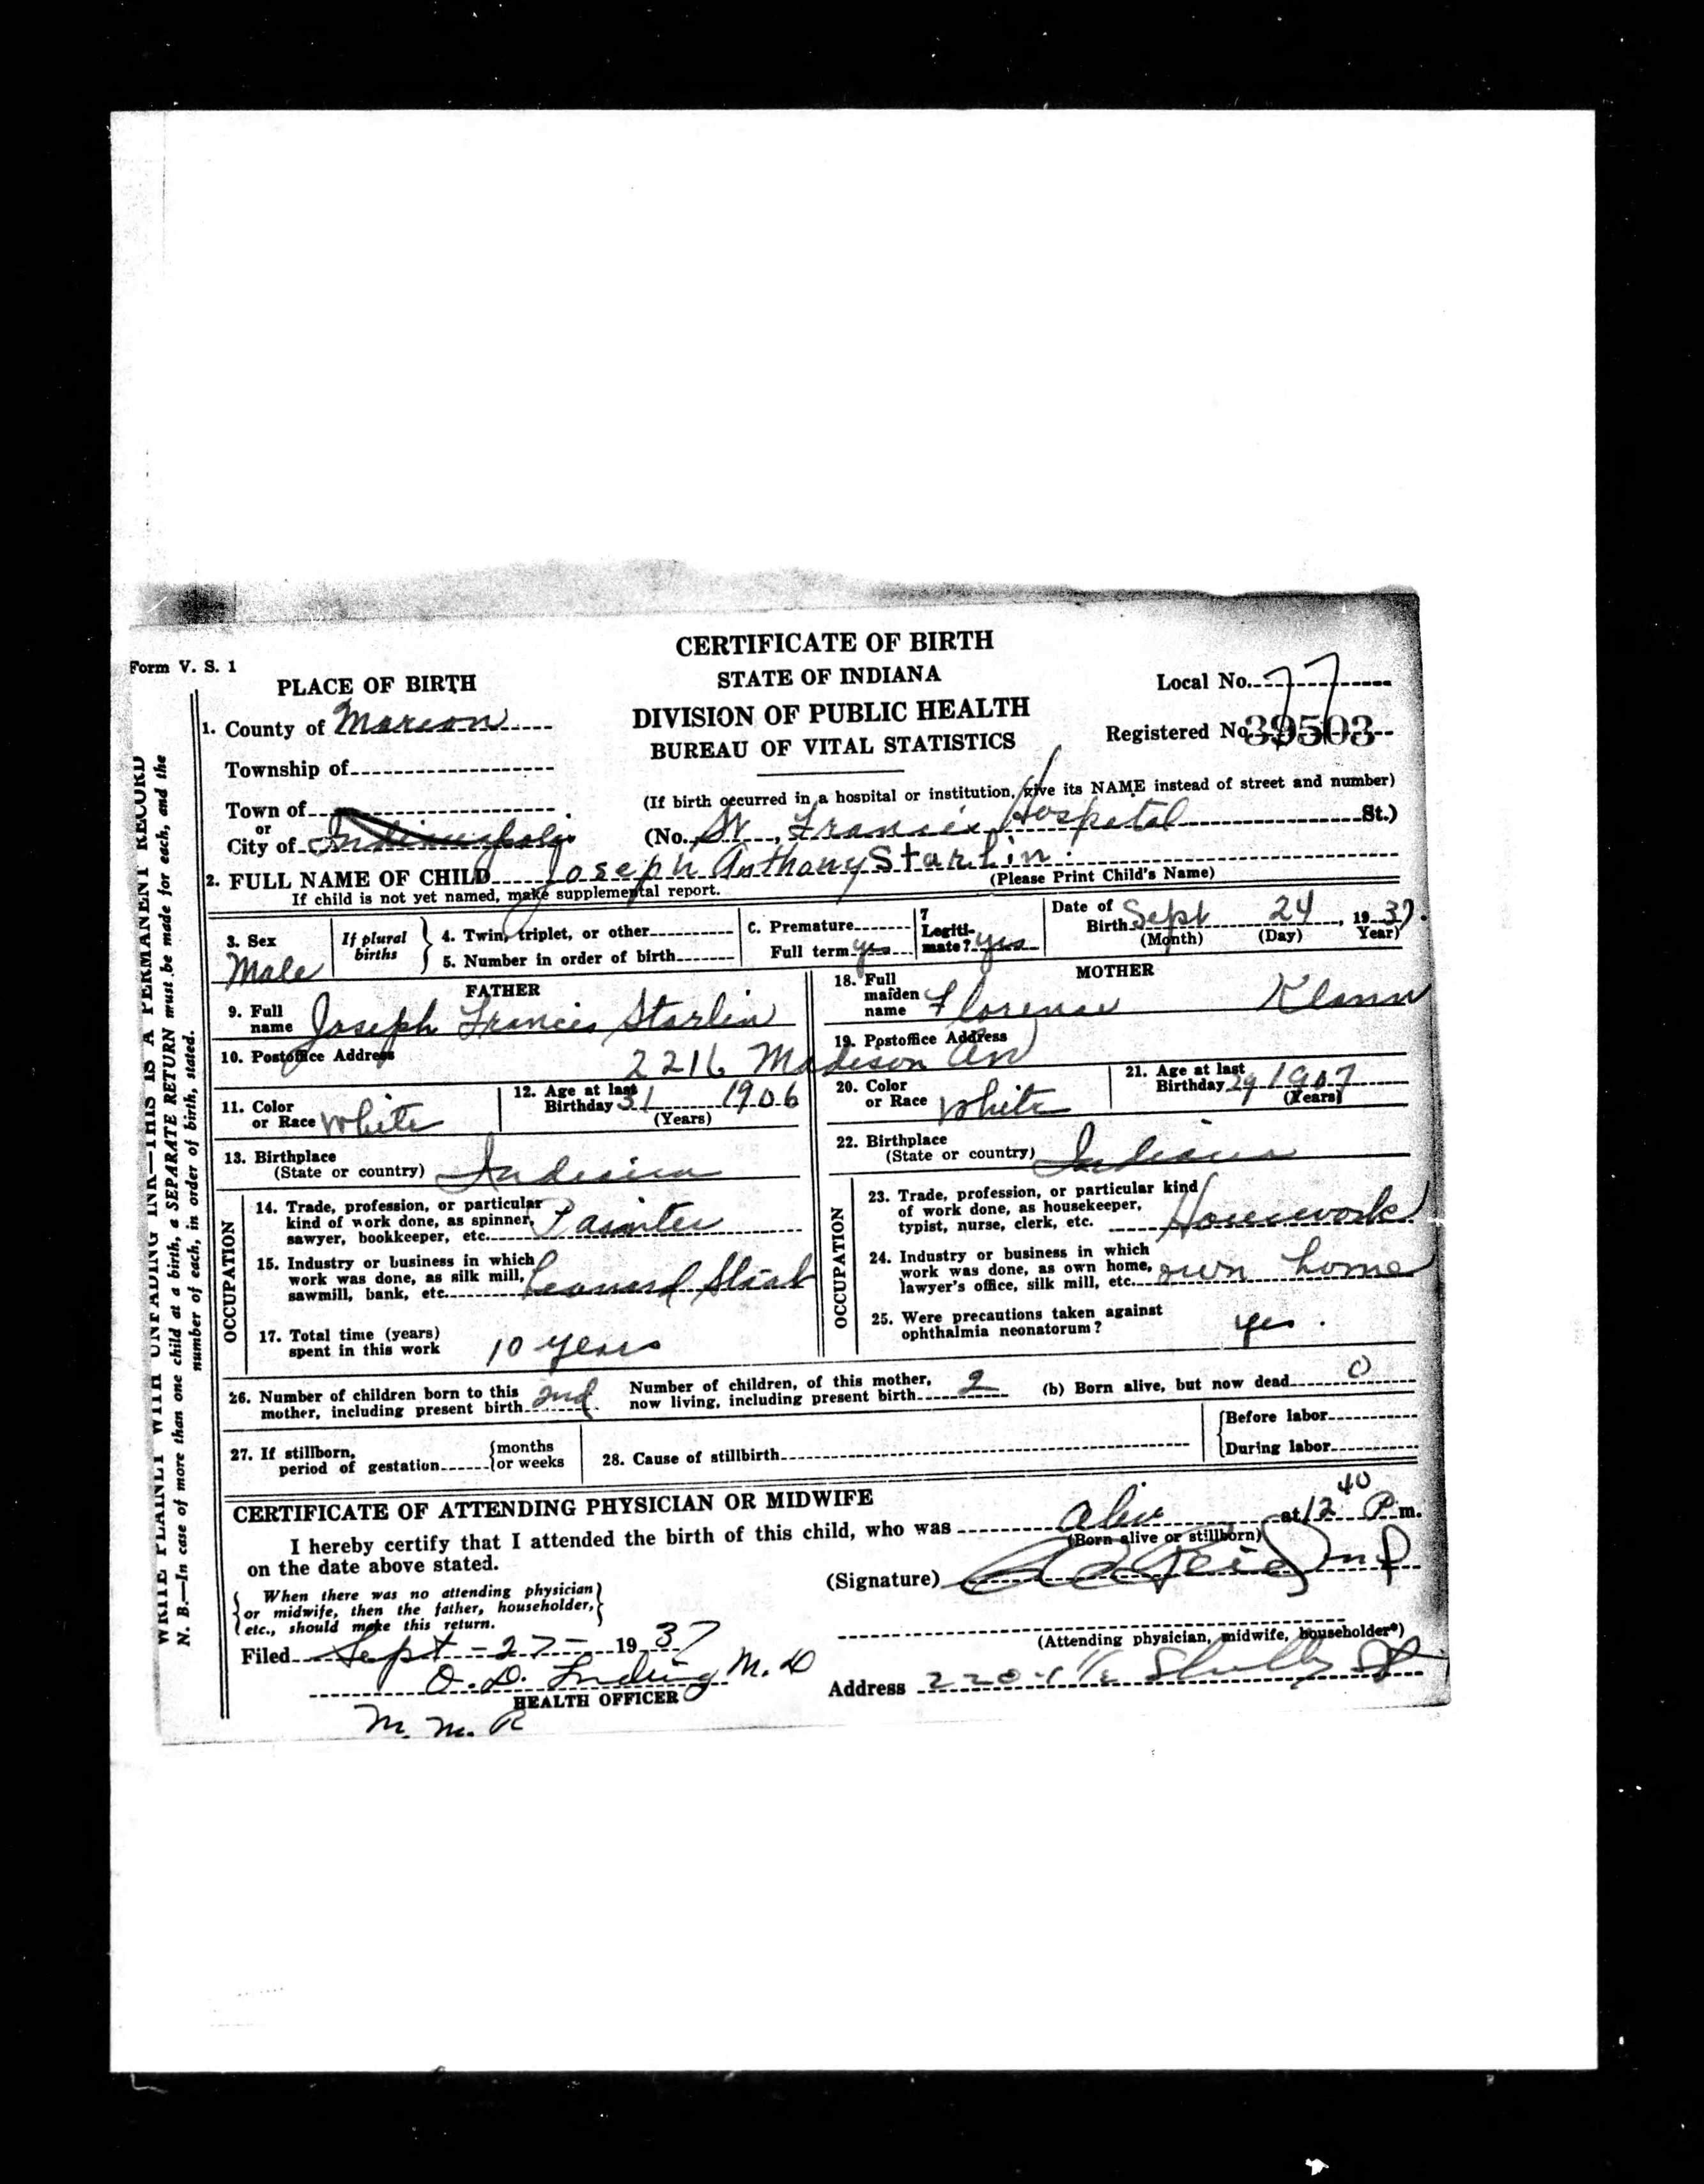 CERTIFICATE OF BIRTH
Form V. S. 1
STATE OF INDIANA
DIVISION OF PUBLIC HEALTH
BUREAU OF VITAL STATISTICS
Local No. 77
Registered No. 39503
PLACE OF BIRTH
1. County of Marion
Township of
Town of
or
City of Indianapolis
(If birth occurred in a hospital or institution, give its NAME instead of street and number)
(No. St. Francis Hospital St.)
2. FULL NAME OF CHILD Joseph Anthony Starlin
(Please Print Child's Name)
If child is not yet named, make supplemental report.
3. Sex
Male
If plural births
4. Twin, triplet, or other
5. Number in order of birth
C. Premature
Full term yes
7 Legiti-
mate? yes
Date of
Birth Sept 24, 1937.
(Month) (Day) Year)
FATHER
9. Full
name Joseph Francis Starlin
10. Postoffice Address
2216 Madison Av
11. Color
or Race White
12. Age at last
Birthday 31 1906
(Years)
13. Birthplace
(State or country) Indiana
OCCUPATION
14. Trade, profession, or particular
kind of work done, as spinner, Painter
sawyer, bookkeeper, etc.
15. Industry or business in which
work was done, as silk mill, Leonard
sawmill, bank, etc.
17. Total time (years)
spent in this work 10 years
MOTHER
18. Full
maiden
name Florence Klann
19. Postoffice Address
20. Color
or Race White
21. Age at last
Birthday 29 1907
(Years)
22. Birthplace
(State or country) Indiana
OCCUPATION
23. Trade, profession, or particular kind
of work done, as housekeeper,
typist, nurse, clerk, etc. Housework
24. Industry or business in which
work was done, as own home,
lawyer's office, silk mill, etc. own home
25. Were precautions taken against
ophthalmia neonatorum? yes.
26. Number of children born to this
mother, including present birth 2nd
Number of children, of this mother,
now living, including present birth 2
(b) Born alive, but now dead 0
27. If stillborn,
period of gestation months
or weeks
28. Cause of stillbirth
Before labor
During labor
CERTIFICATE OF ATTENDING PHYSICIAN OR MIDWIFE
I hereby certify that I attended the birth of this child, who was alive at 12 40 P. m.
(Born alive or stillborn)
on the date above stated.
When there was no attending physician
or midwife, then the father, householder,
etc., should make this return.
(Signature)
(Attending physician, midwife, householder*)
Filed Sept - 27 - 1937
O. D. M. D
HEALTH OFFICER
M. M. R
Address Shelby St
WRITE PLAINLY WITH UNFADING INK—THIS IS A PERMANENT RECORD
N. B.—In case of more than one child at a birth, a SEPARATE RETURN must be made for each, and the
number of each, in order of birth, stated.